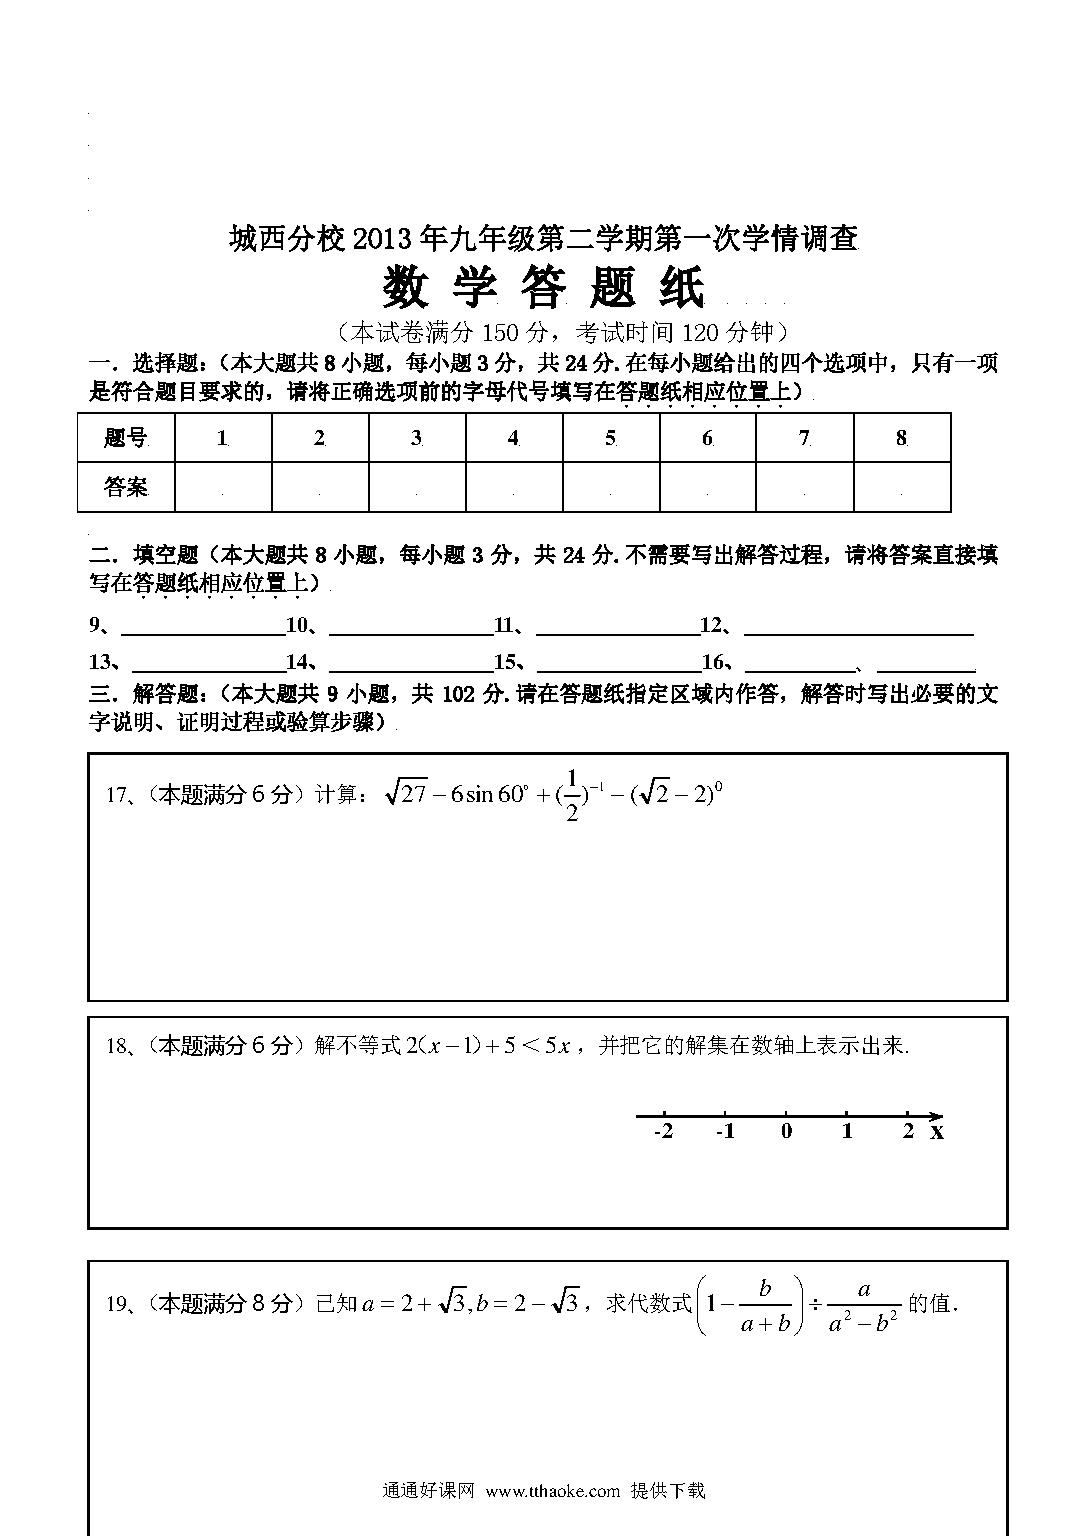 城西分校 2013 年九年级第二学期第一次学情调查
数 学 答 题 纸
（本试卷满分 150 分，考试时间 120 分钟）
一．选择题：（本大题共 8 小题，每小题 3 分，共 24 分. 在每小题给出的四个选项中，只有一项
是符合题目要求的，请将正确选项前的字母代号填写在答题纸相应位置上）
题号 1 2 3 4 5 6 7 8
答案
二．填空题（本大题共 8 小题，每小题 3 分，共 24 分. 不需要写出解答过程，请将答案直接填
写在答题纸相应位置上）
9、_______________10、_______________11、_______________12、_____________________
13、______________14、_______________15、_______________16、__________、_________
三．解答题：（本大题共 9 小题，共 102 分. 请在答题纸指定区域内作答，解答时写出必要的文
字说明、证明过程或验算步骤）
17、（本题满分 6 分）计算： √27 − 6sin 60° + (1/2)⁻¹ − (√2 − 2)⁰
18、（本题满分 6 分）解不等式 2(x − 1) + 5 < 5x ，并把它的解集在数轴上表示出来.
-2 -1 0 1 2 x
19、（本题满分 8 分）已知 a = 2 + √3, b = 2 − √3 ，求代数式 (1 − b/(a + b)) ÷ a/(a² − b²) 的值．
通通好课网 www.tthaoke.com 提供下载